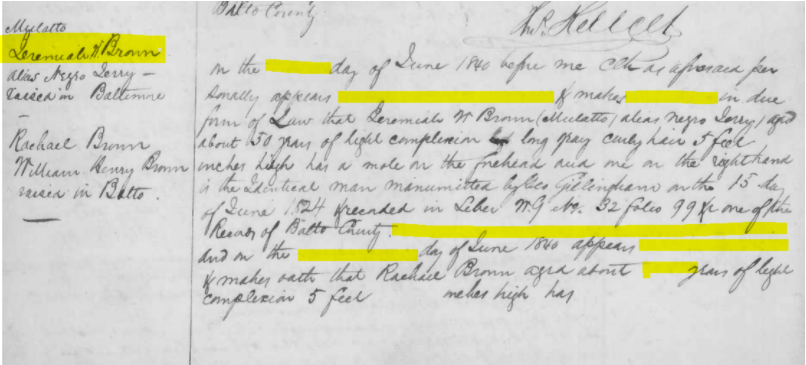 Mulatto
Jeremiah W Brown
alias Negro Jerry —
raised in Baltimore
—
Rachael Brown
William Henry Brown
raised in Balto.
Balto County
Thos. Kell Clk
on the day of June 1840 before me Clk as aforesaid per
sonally appears & makes in due
form of Law that Jeremiah W Brown (Mulatto) alias negro Jerry) aged
about 50 years of light complexion long gray curly hair 5 feet
inches high has a mole on the forehead and one on the right hand
is the Identical man manumitted by Geo Gillingham on the 15 day
of June 1824 & recorded in Liber W.G No. 32 folio 99 &c one of the
Records of Balto County.
and on the day of June 1840 appears
& makes oath that Rachael Brown aged about years of light
complexion 5 feet inches high has